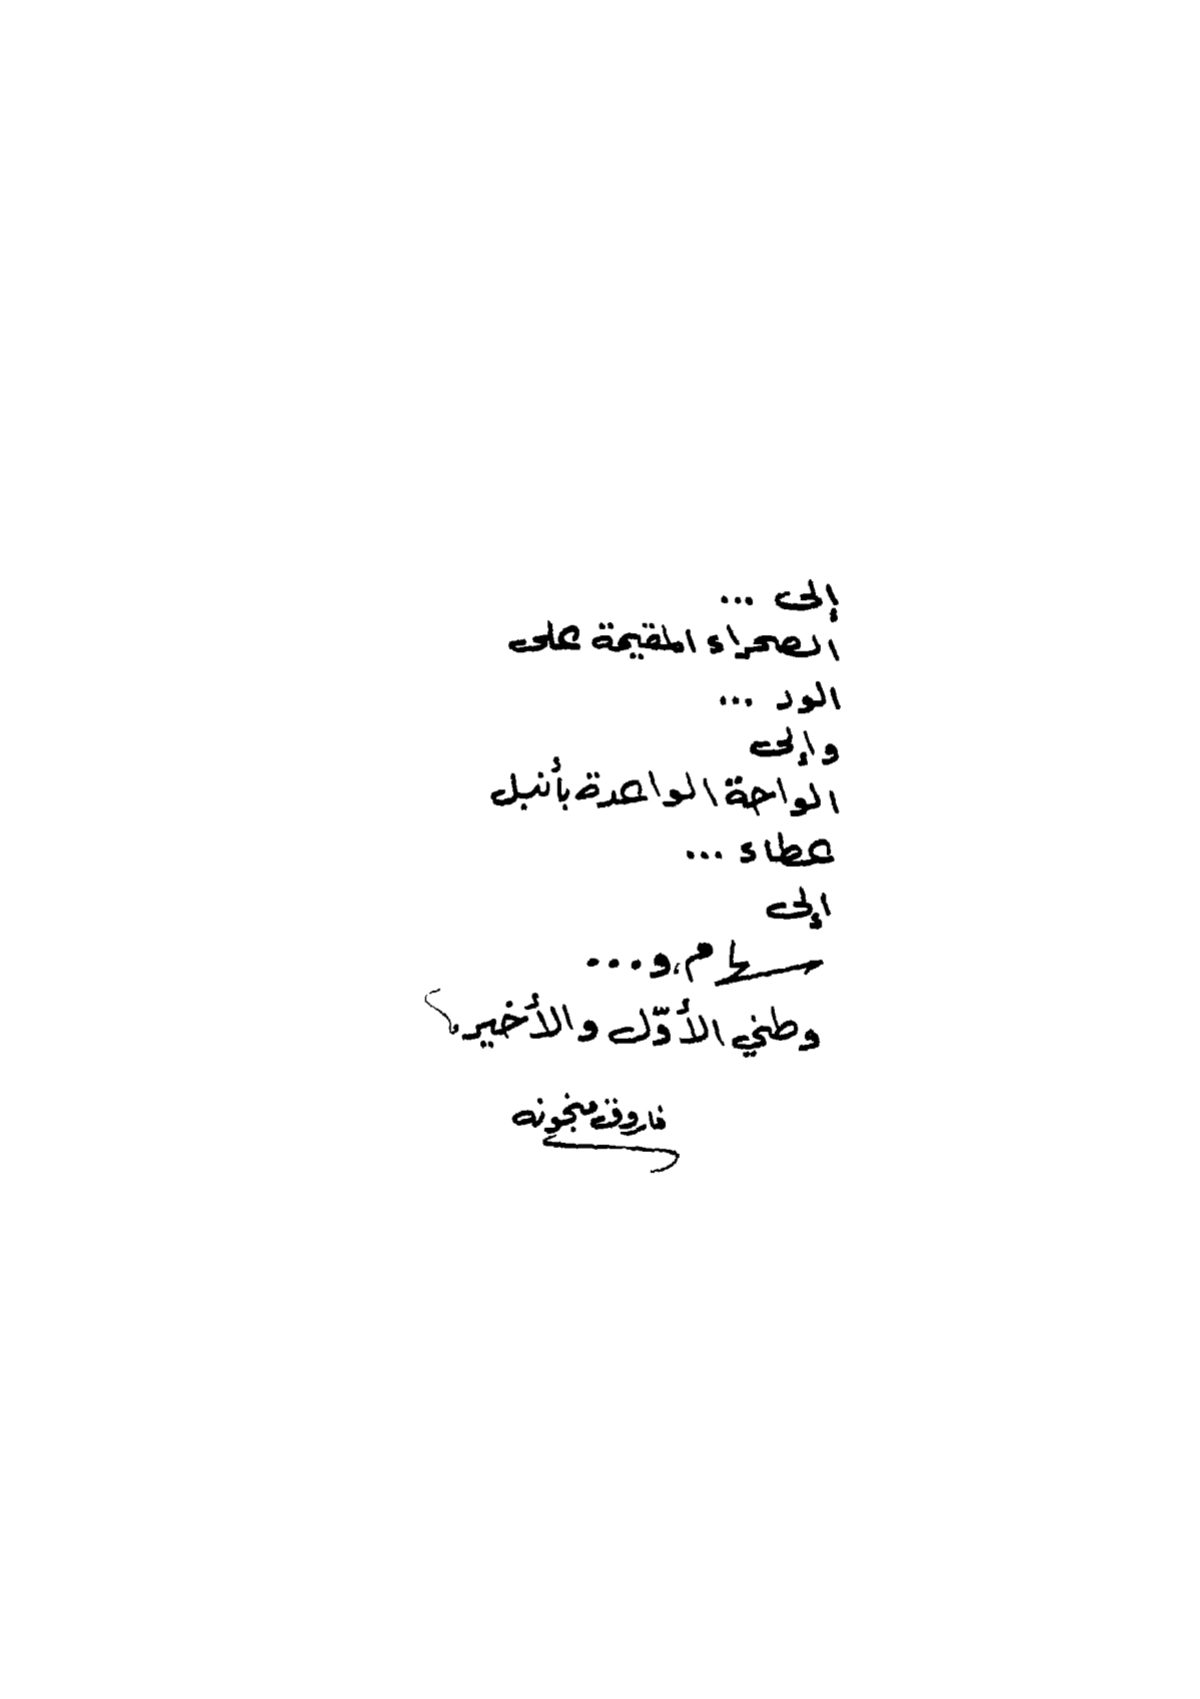 إلى ...
الصحراء المقيمة على
الود ...
وإلى
الواحة الواعدة بأنبل
عطاء ...
إلى
سهام، و...
وطني الأوّل والأخير
فاروق منجونه